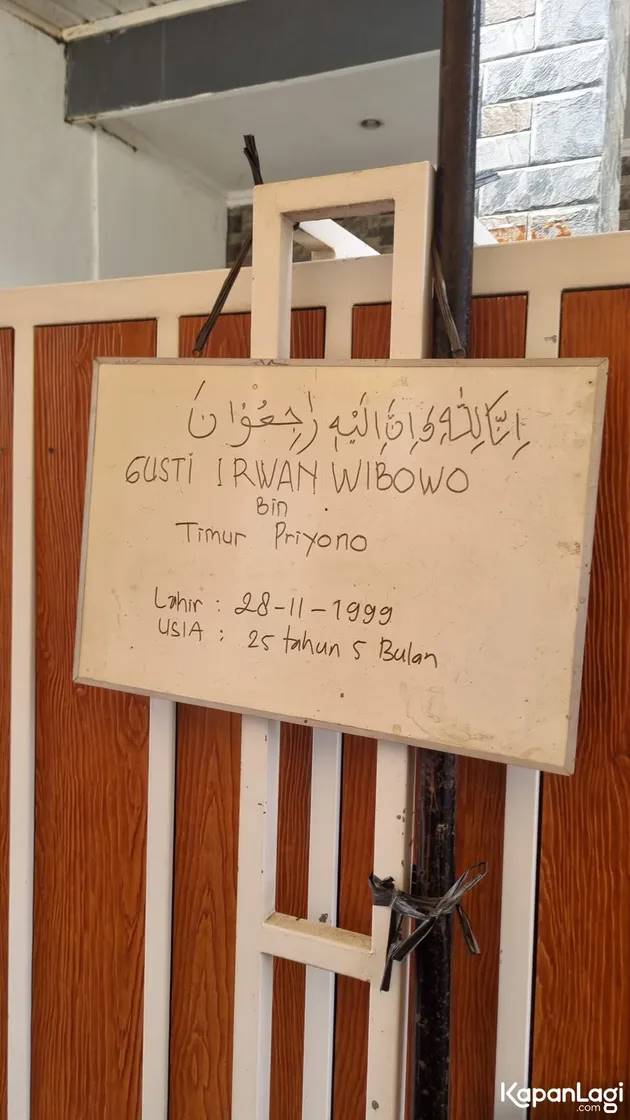 اِنَّا لِلّٰهِ وَاِنَّا اِلَيْهِ رَاجِعُوْنَ
GUSTI IRWAN WIBOWO
Bin
Timur Priyono
Lahir : 28-11-1999
USIA : 25 tahun 5 Bulan
KapanLagi
.com